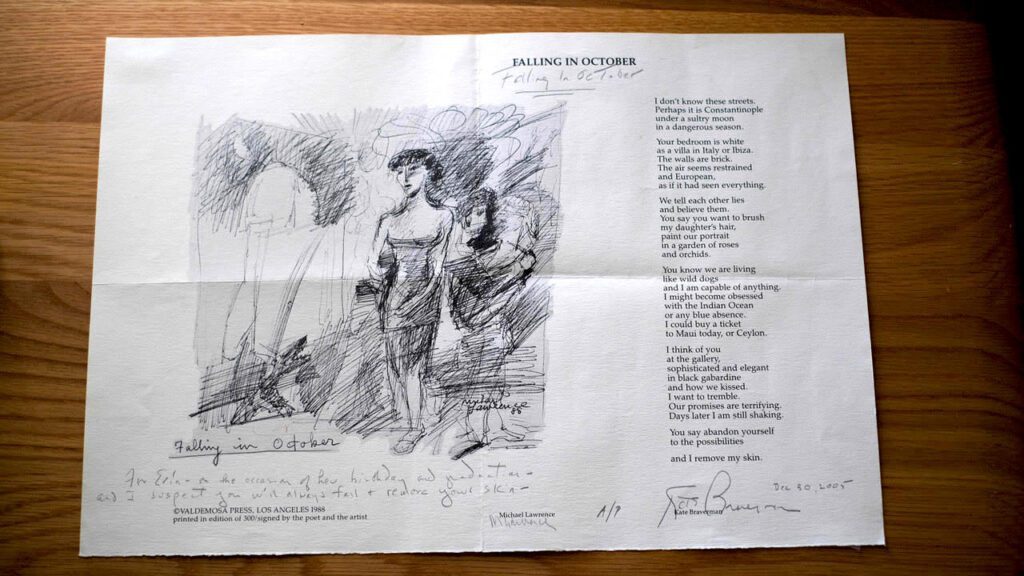 FALLING IN OCTOBER
Falling In October
I don't know these streets.
Perhaps it is Constantinople
under a sultry moon
in a dangerous season.
Your bedroom is white
as a villa in Italy or Ibiza.
The walls are brick.
The air seems restrained
and European,
as if it had seen everything.
We tell each other lies
and believe them.
You say you want to brush
my daughter's hair,
paint our portrait
in a garden of roses
and orchids.
You know we are living
like wild dogs
and I am capable of anything.
I might become obsessed
with the Indian Ocean
or any blue absence.
I could buy a ticket
to Maui today, or Ceylon.
I think of you
at the gallery,
sophisticated and elegant
in black gabardine
and how we kissed.
I want to tremble.
Our promises are terrifying.
Days later I am still shaking.
You say abandon yourself
to the possibilities
and I remove my skin.
Lawrence
Falling in October
For Erin - on the occasion of her birthday and graduation -
and I suspect you will always fall + restore your skin -
©VALDEMOSA PRESS, LOS ANGELES 1988
printed in edition of 300/signed by the poet and the artist
Michael Lawrence
MLawrence
A/P
Kate Braverman
Kate Braverman
Dec 30, 2005